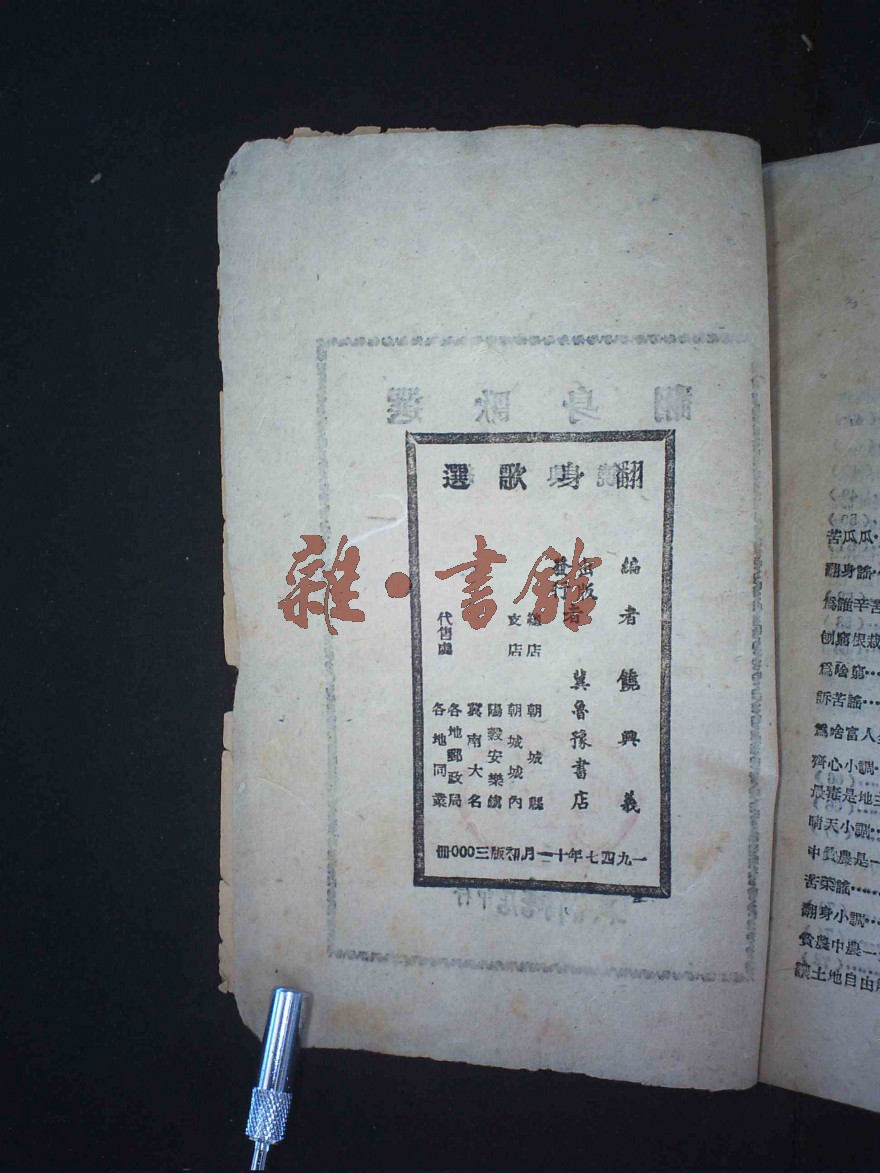 翻身歌選
編者 饒興義
出版
發行者 冀魯豫書店
總店 朝城縣
支店 朝城城內
陽穀安樂鎮
冀南大名
代售處 各地郵政局
各地同業
一九四七年十一月初版三000冊
雜·書館
苦瓜瓜
翻身謠
爲誰辛苦
刨窮根栽
爲啥窮
訴苦謠
爲啥富人
齊心小調
最毒是地主
晴天小調
中貧農是一
苦菜謠
翻身小調
貧農中農一
讓土地自由